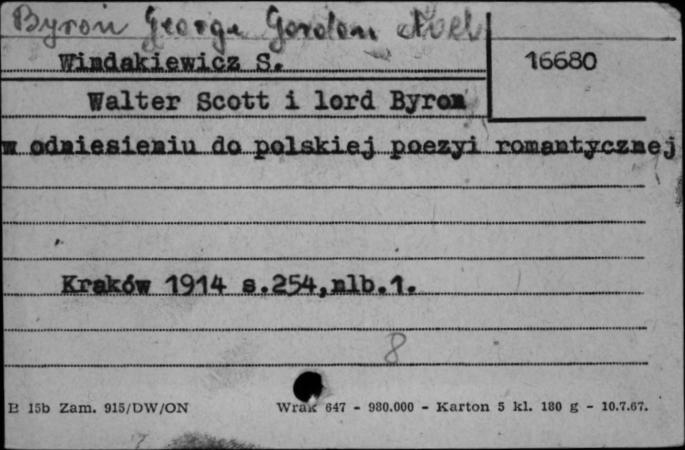 Byron George Gordon Noel
Windakiewicz S.
16680
Walter Scott i lord Byron
w odniesieniu do polskiej poezyi romantycznej
Kraków 1914 s.254,nlb.1.
8
E 15b Zam. 915/DW/ON
Wrak 647 - 980.000 - Karton 5 kl. 180 g - 10.7.67.